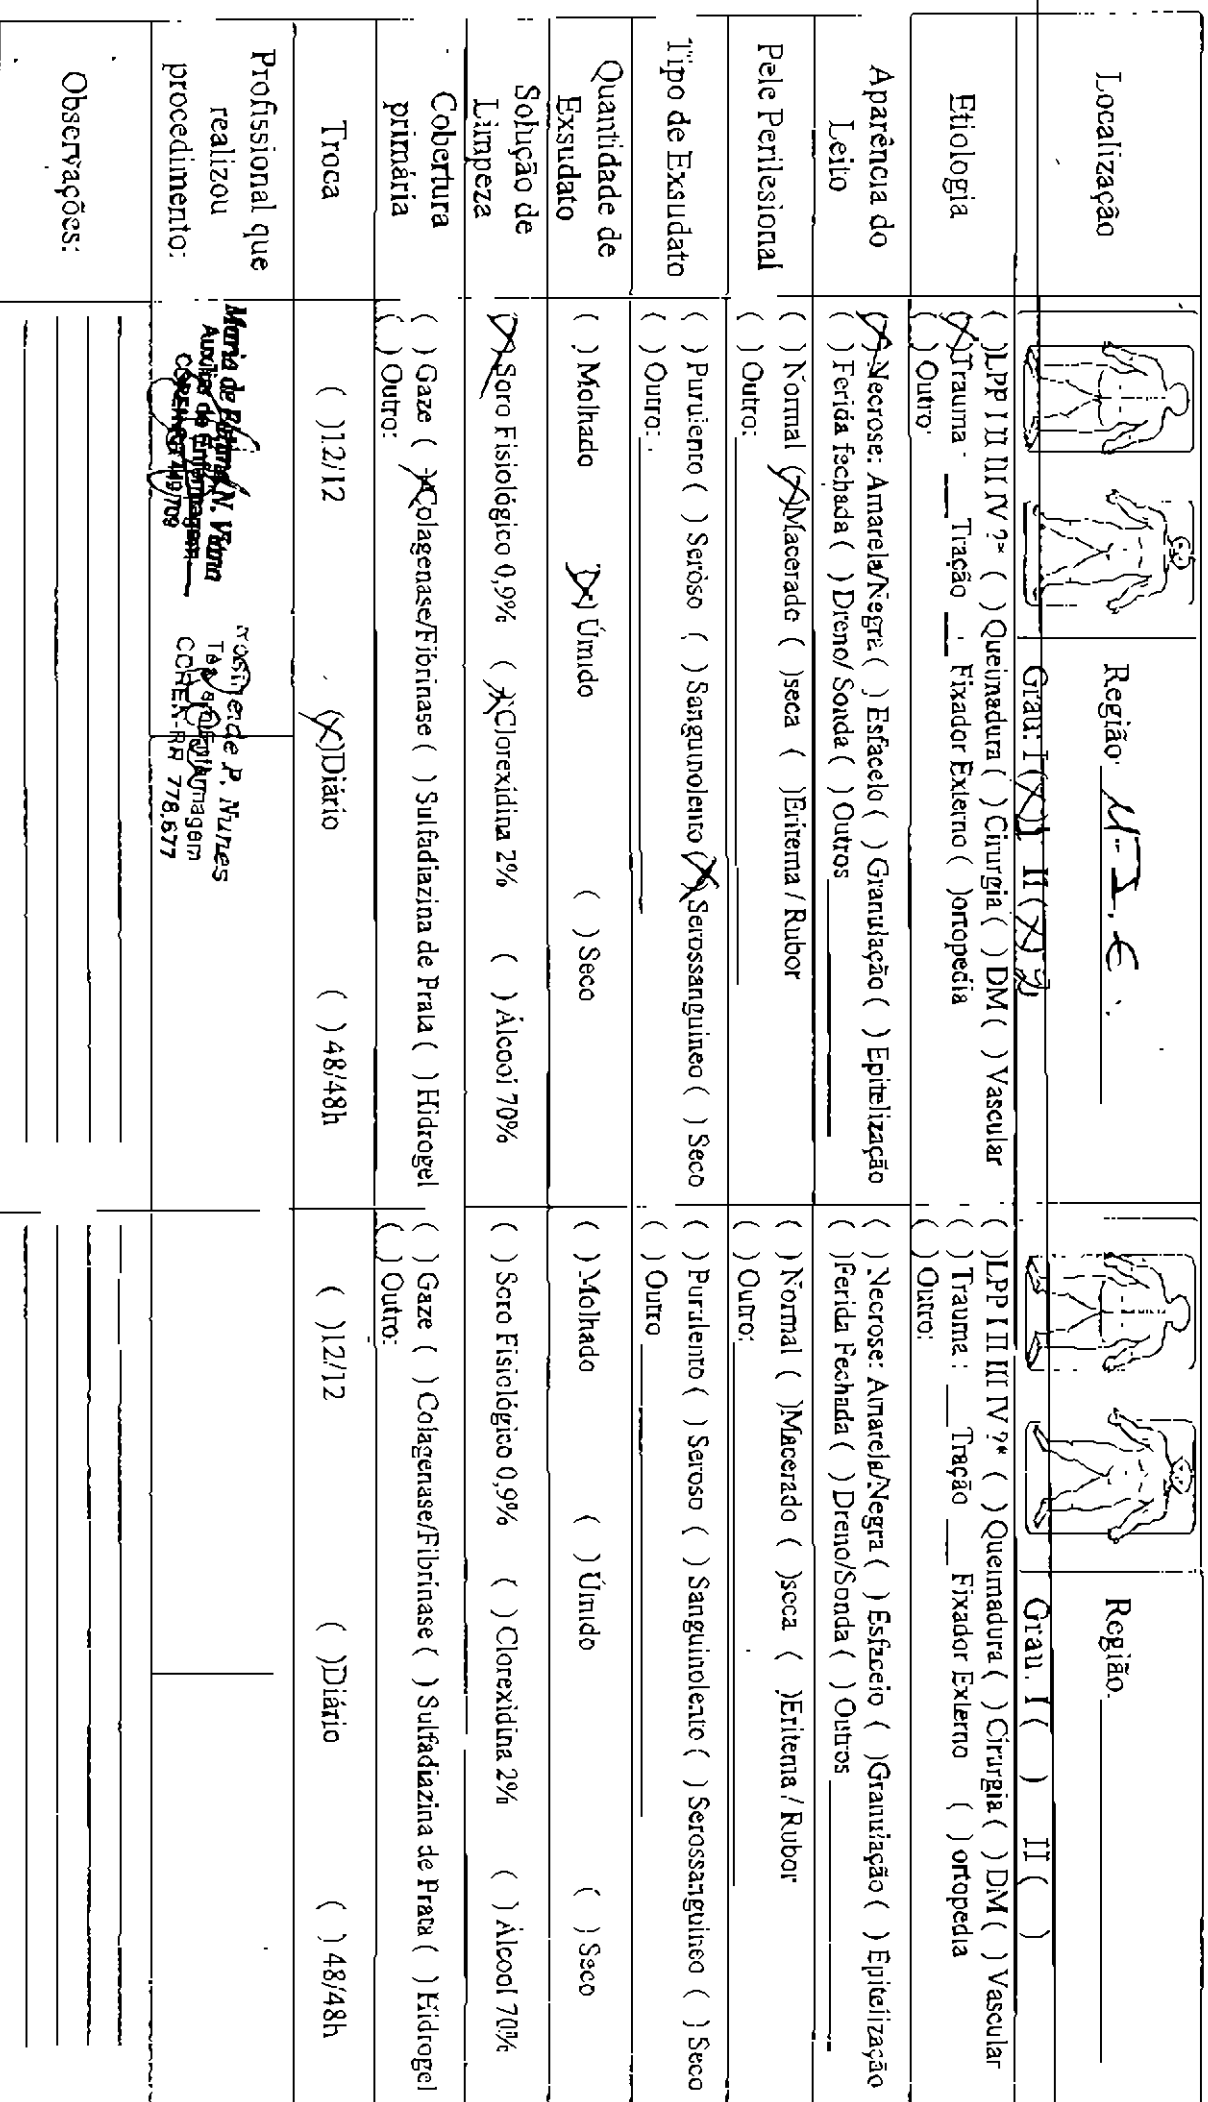 Localização
Região: M.I.E.
Grau: I (X) 1 II (X) 2
Região.
Grau. I ( ) II ( )
Etiologia
( )LPP I II III IV ?* ( ) Queimadura ( ) Cirurgia ( ) DM ( ) Vascular
(X)Trauma · ___ Tração __ · Fixador Externo ( )ortopedia
( ) Outro·
( )LPP I II III IV ?* ( ) Queimadura ( ) Cirurgia ( ) DM ( ) Vascular
( ) Trauma : ___ Tração ___ Fixador Externo ( ) ortopedia
( ) Outro:
Aparência do
Leito
(X) Necrose: Amarela/Negra ( ) Esfacelo ( ) Granulação ( ) Epitelização
( ) Ferida fechada ( ) Dreno/ Sonda ( ) Outros
( ) Necrose: Amarela/Negra ( ) Esfacelo ( )Granulação ( ) Epitelização
( )Ferida Fechada ( ) Dreno/Sonda ( ) Outros
Pele Perilesional
( ) Normal (X)Macerado ( )seca ( )Eritema / Rubor
( ) Outro:
( ) Normal ( )Macerado ( )seca ( )Eritema / Rubor
( ) Outro:
Tipo de Exsudato
( ) Purulento ( ) Seroso ( ) Sanguinolento (X) Serossanguineo ( ) Seco
( ) Outro:
( ) Purulento ( ) Seroso ( ) Sanguinolento ( ) Serossanguineo ( ) Seco
( ) Outro
Quantidade de
Exsudato
( ) Molhado (X) Úmido ( ) Seco
( ) Molhado ( ) Úmido ( ) Seco
Solução de
Limpeza
(X) Soro Fisiológico 0,9% (X)Clorexidina 2% ( ) Álcool 70%
( ) Soro Fisiológico 0,9% ( ) Clorexidina 2% ( ) Álcool 70%
Cobertura
primária
( ) Gaze (X)Colagenase/Fibrinase ( ) Sulfadiazina de Prata ( ) Hidrogel
( ) Outro:
( ) Gaze ( ) Colagenase/Fibrinase ( ) Sulfadiazina de Prata ( ) Hidrogel
( ) Outro:
Troca
( )12/12 (X)Diário ( ) 48/48h
( )12/12 ( )Diário ( ) 48/48h
Profissional que
realizou
procedimento:
Maria de N. Viana
Auxiliar de Enfermagem
P. Nunes
COREN-RR 778.677
Observações: